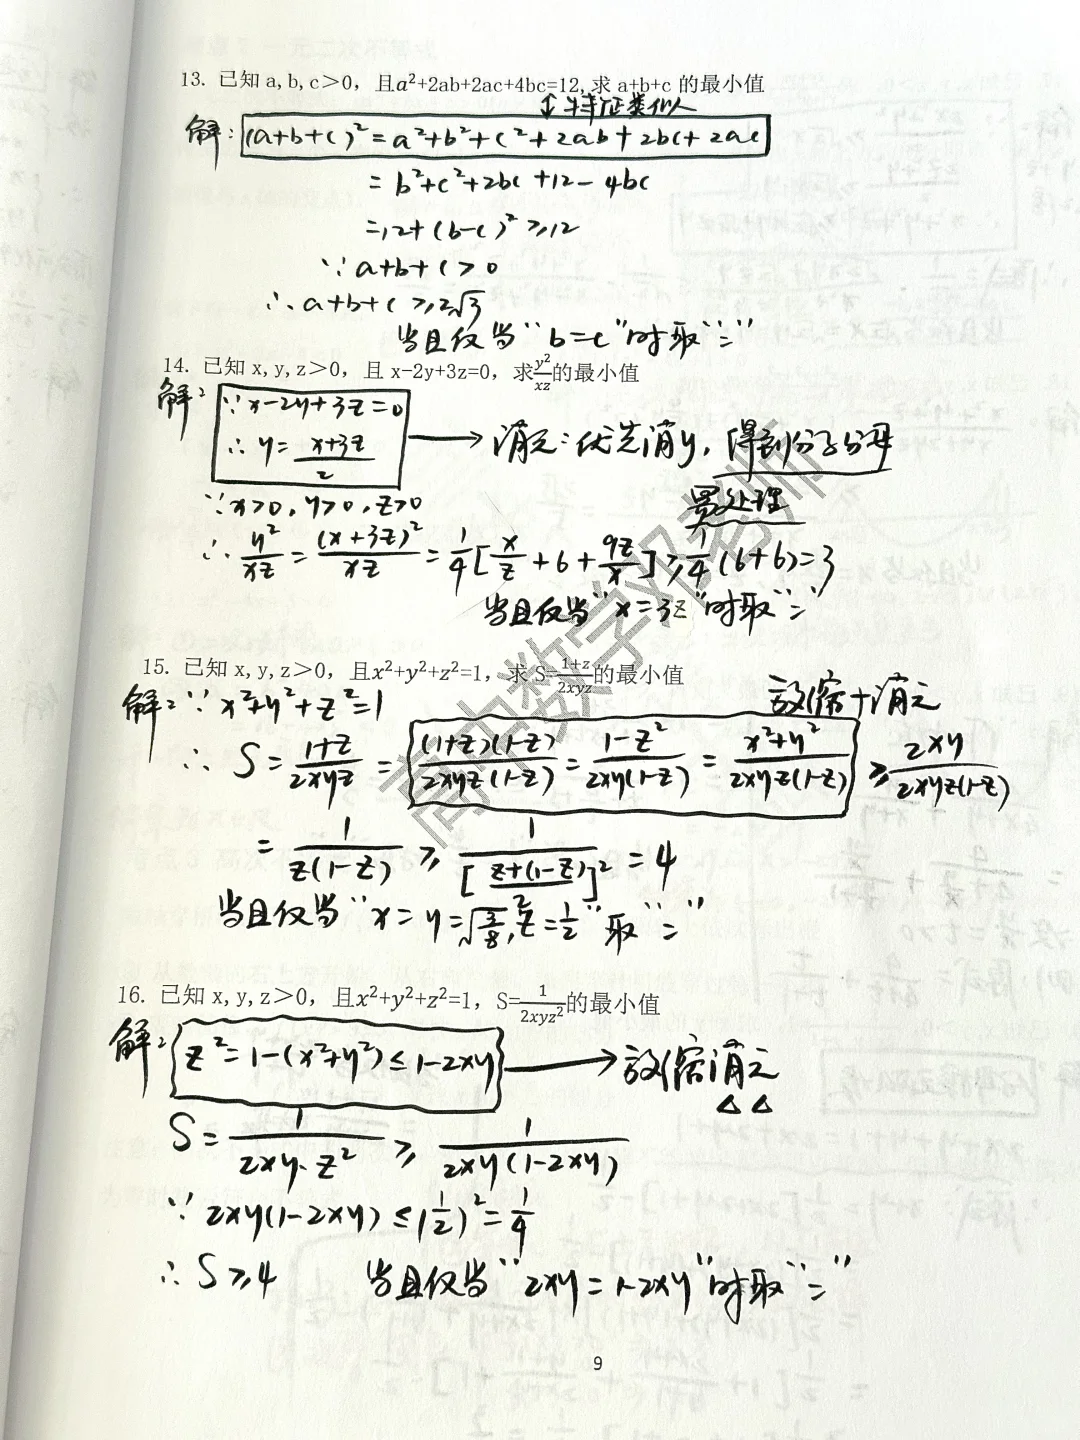 13. 已知 a,b,c＞0，且a²+2ab+2ac+4bc=12,求 a+b+c 的最小值
↕特征类似
解: (a+b+c)²=a²+b²+c²+2ab+2bc+2ac
=b²+c²+2bc+12-4bc
=12+(b-c)²≥12
∵a+b+c>0
∴a+b+c≥2√3
当且仅当"b=c"时取"="
14. 已知 x,y,z＞0，且 x-2y+3z=0，求y²/xz的最小值
解: ∵x-2y+3z=0
∴y=(x+3z)/2 → 消元:优先消y,得到分子分母
∵x>0,y>0,z>0 幂处理
∴y²/xz=(x+3z)²/xz=1/4[x/z+6+9z/x]≥1/4(6+6)=3
当且仅当"x=3z"时取"="
高中数学邓老师
15. 已知 x,y,z＞0，且x²+y²+z²=1，求 S=(1+z)/2xyz的最小值
解: ∵x²+y²+z²=1 放缩+消元
∴S=(1+z)/2xyz=(1+z)(1-z)/2xyz(1-z)=(1-z²)/2xy(1-z)=(x²+y²)/2xyz(1-z)≥2xy/2xyz(1-z)
=1/z(1-z)≥1/[(z+(1-z))/2]²=4
当且仅当"x=y=√(3/8),z=1/2"取"="
16. 已知 x,y,z＞0，且x²+y²+z²=1，S=1/2xyz²的最小值
解: z²=1-(x²+y²)≤1-2xy → 放缩消元
△△
S=1/2xy·z²≥1/2xy(1-2xy)
∵2xy(1-2xy)≤(1/2)²=1/4
∴S≥4 当且仅当"2xy=1-2xy"时取"="
9